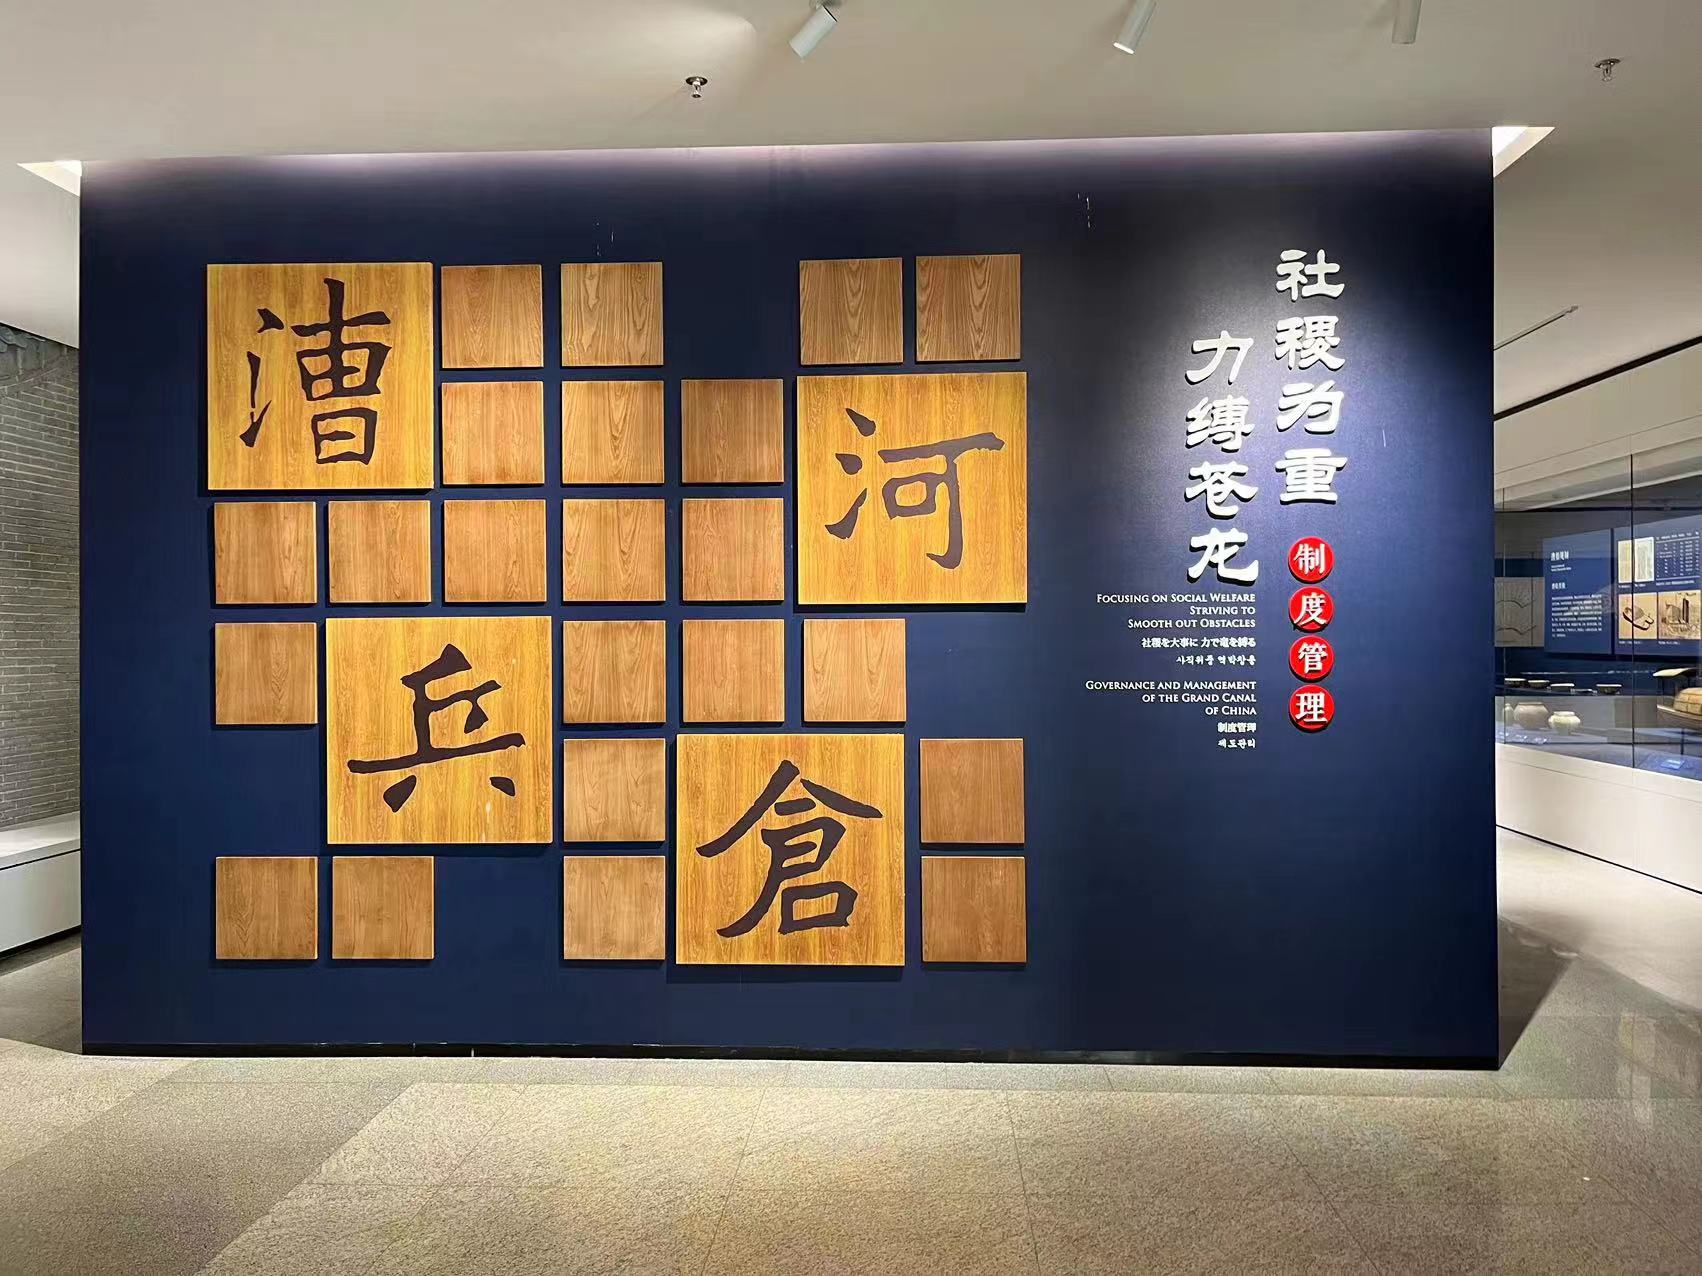 漕
河
兵
倉
社稷为重
力缚苍龙
制度管理
FOCUSING ON SOCIAL WELFARE
STRIVING TO
SMOOTH OUT OBSTACLES
社稷を大事に 力で竜を縛る
사직위중 역박창룡
GOVERNANCE AND MANAGEMENT
OF THE GRAND CANAL
OF CHINA
制度管理
제도관리